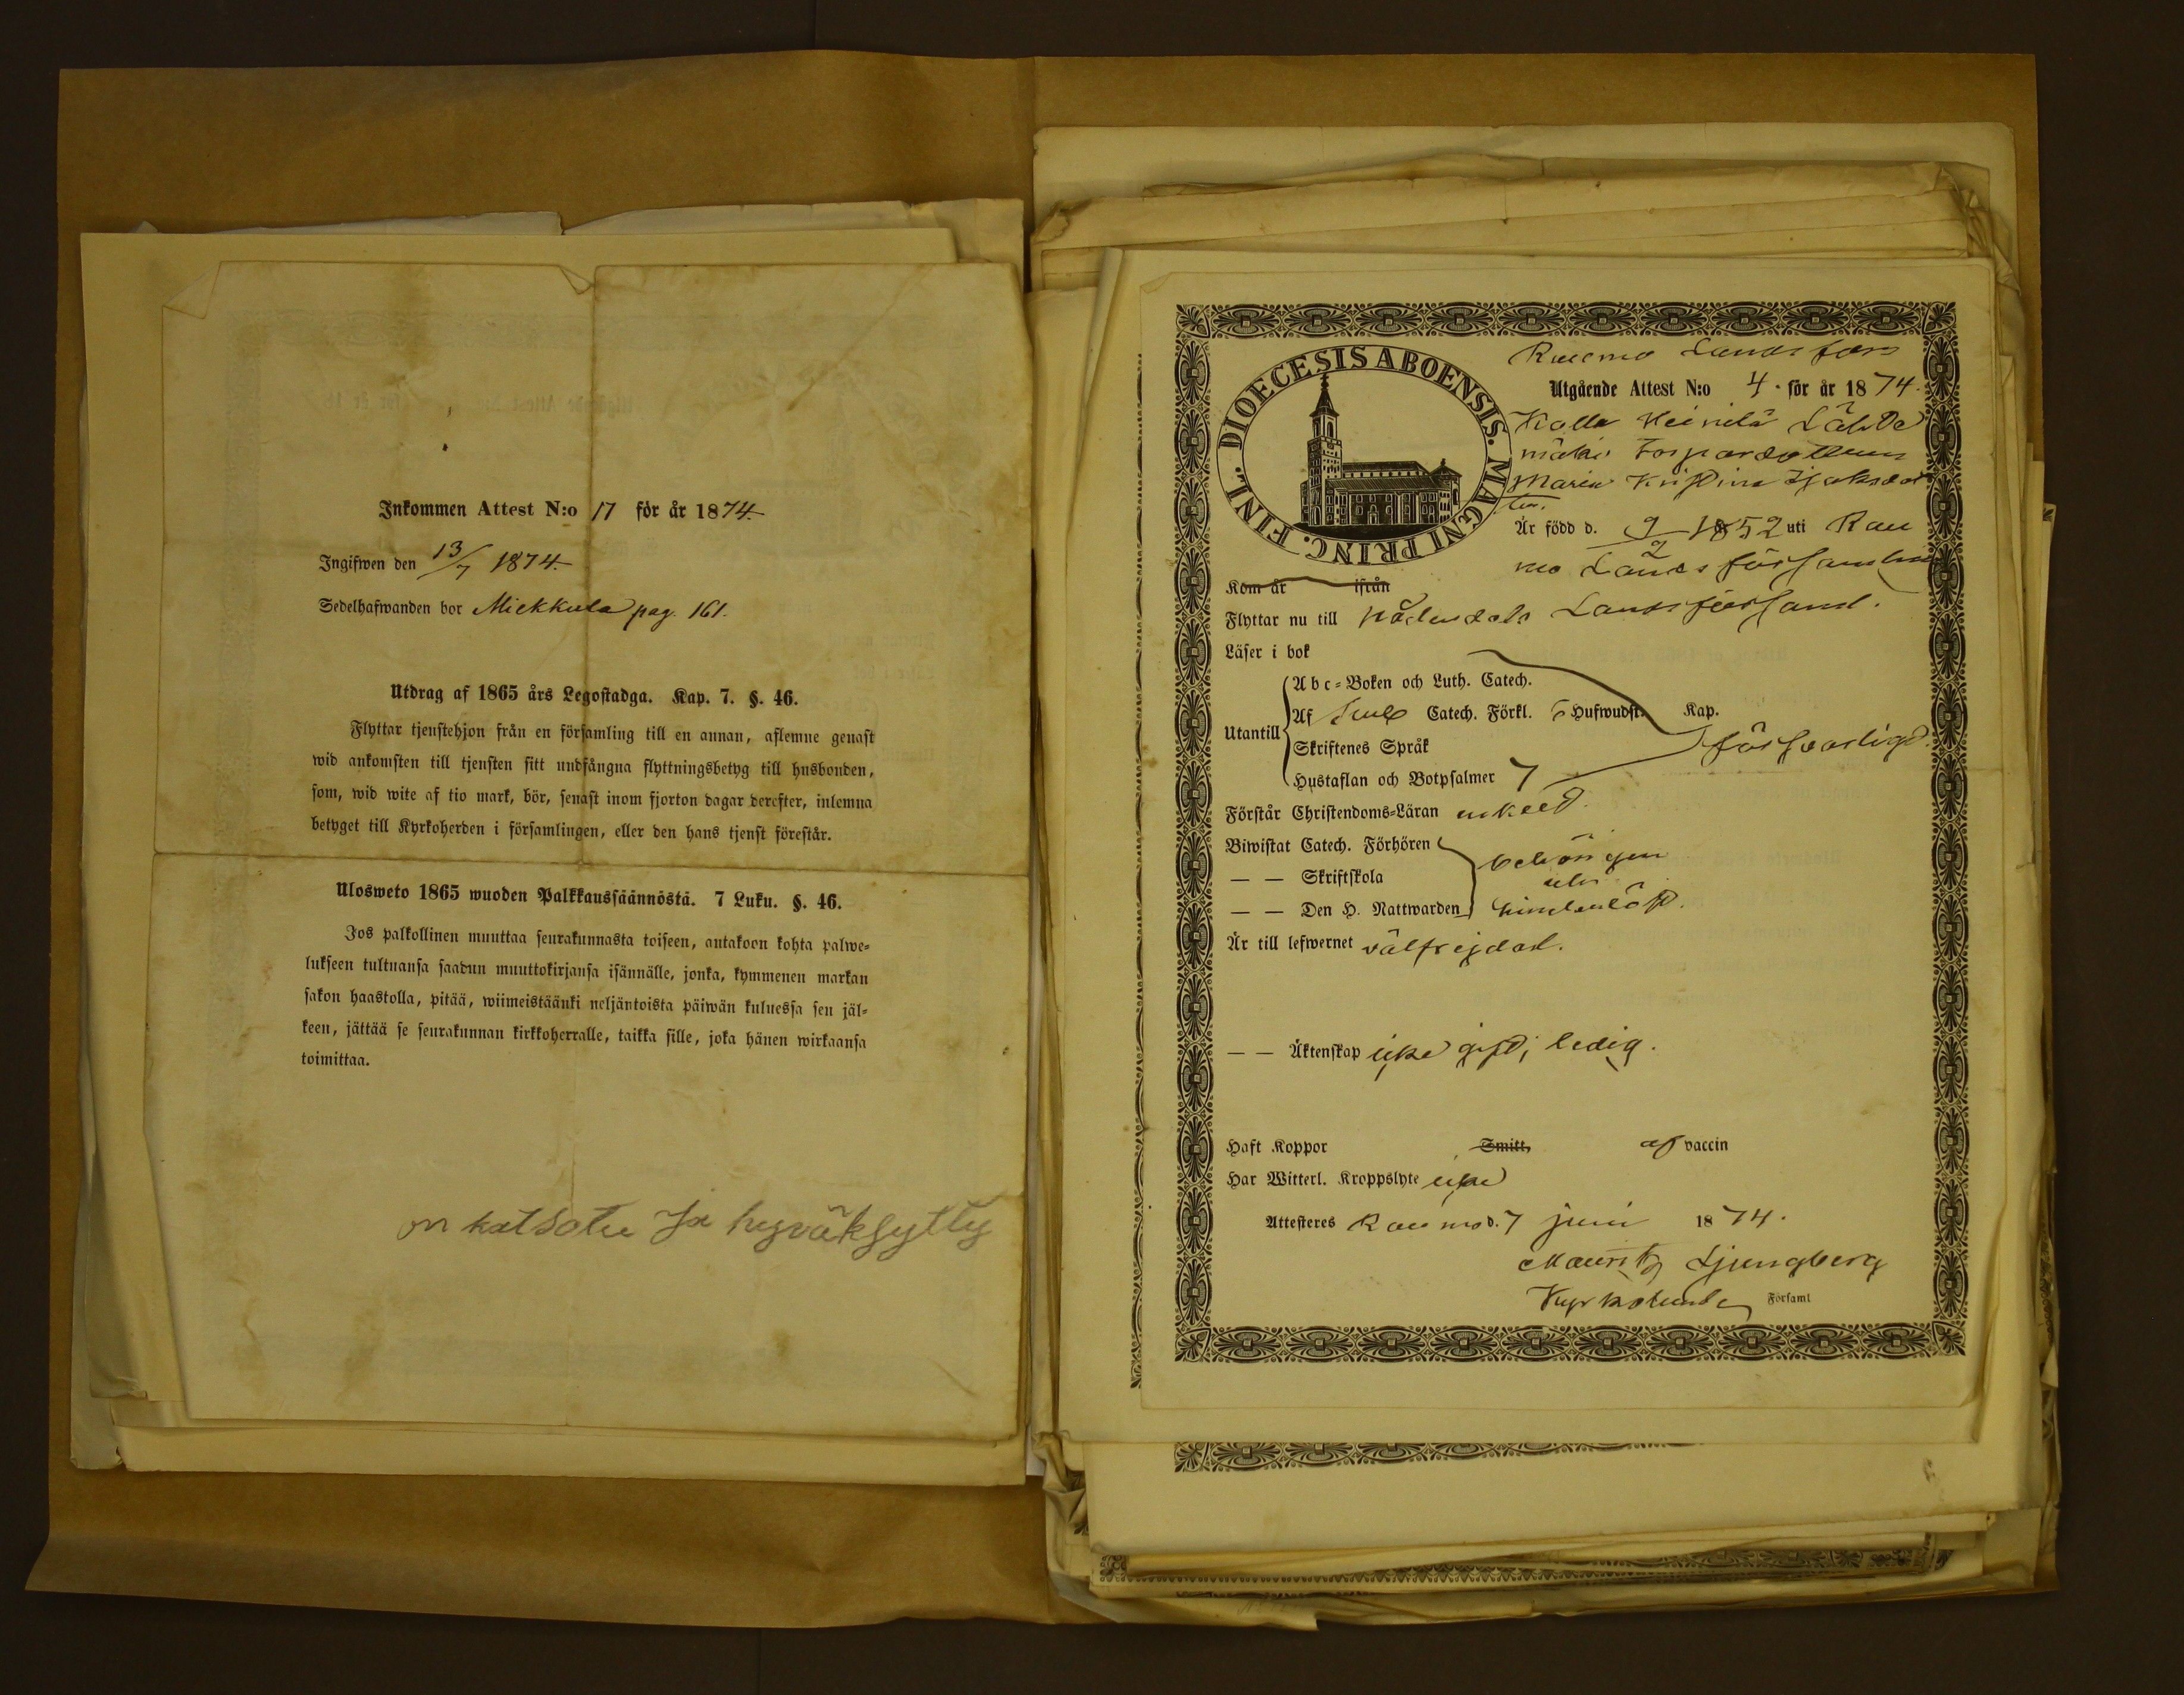 Inkommen Attest N:o 17 för år 1874.
Ingifwen den 13/7 1874.
Sedelhafwanden bor Miekkula pag. 161.
Utdrag af 1865 års Legostadga. Kap. 7. §. 46.
Flyttar tjenstehjon från en församling till en annan, aflemne genast
wid ankomsten till tjensten sitt undfångna flyttningsbetyg till husbonden,
som, wid wite af tio mark, bör, senast inom fjorton dagar derefter, inlemna
betyget till Kyrkoherden i församlingen, eller den hans tjenst förestår.
Ulosweto 1865 wuoden Palkkaussäännöstä. 7 Luku. §. 46.
Jos palkollinen muuttaa seurakunnasta toiseen, antakoon kohta palwe=
lukseen tultuansa saadun muuttokirjansa isännälle, jonka, kymmenen markan
sakon haastolla, pitää, wiimeistäänki neljäntoista päiwän kuluessa sen jäl=
keen, jättää se seurakunnan kirkkoherralle, taikka sille, joka hänen wirkaansa
toimittaa.
on katsotu ja hyväksytty
DIOECESIS ABOENSIS. MAGNI PRINC. FINL.
Raumo Landsförs
Utgående Attest N:o 4. för år 1874.
Kolla Heinilä Lähde
mäki Torpardottern
Maria Kristina Isaksdot
ter.
Är född d. 9/2 1852 uti Rau
mo Lands församling
Kom år ifrån
Flyttar nu till Nådendals Landsförsaml.
Läser i bok
Utantill
Abc=Boken och Luth. Catech.
Af Catech. Förkl. 5 Hufwudst. Kap.
Skriftenes Språk
försvarligt.
Hustaflan och Botpsalmer 7
Förstår Christendoms=Läran enkelt.
Biwistat Catech. Förhören
behörigen
— — Skriftskola
och
— — Den H. Nattwarden hinderlöst.
Är till lefwernet välfrejdad.
— — Äktenskap icke gift; ledig.
Haft Koppor Smitt, af vaccin
Har Witterl. Kroppslyte icke
Attesteres Raumo d. 7 juni 1874.
Mauritz Ljungberg
Kyrkoherde Församl